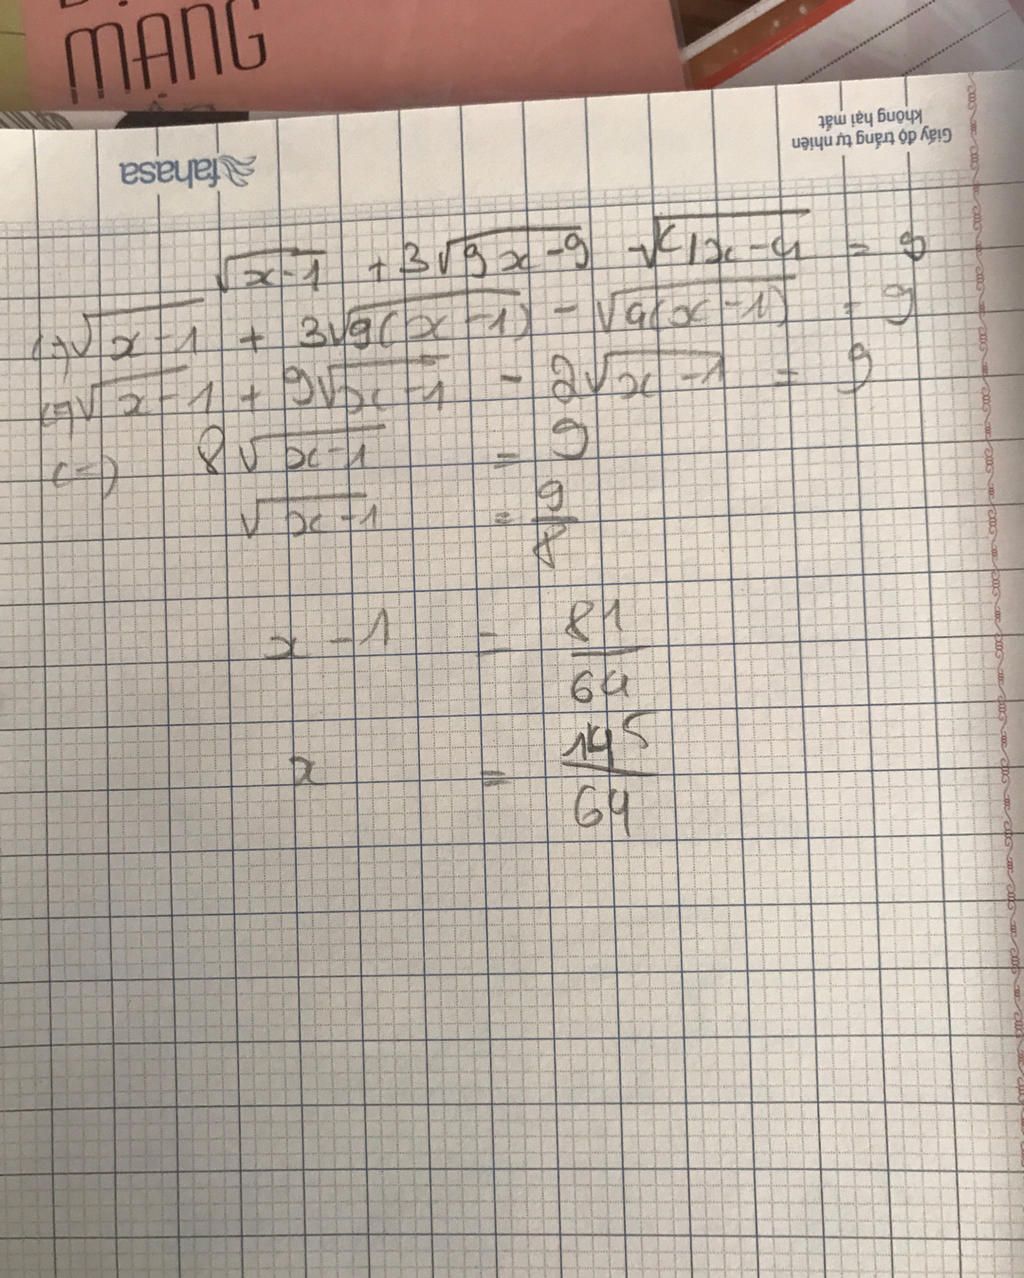 MẠNG
fahasa
Giấy độ trắng tự nhiên
không hại mắt
√(x-1) + 3√(9x-9) - √(4x-4) = 9
(=) √(x-1) + 3√(9(x-1)) - √(4(x-1)) = 9
(=) √(x-1) + 9√(x-1) - 2√(x-1) = 9
(=) 8√(x-1) = 9
√(x-1) = 9/8
x - 1 = 81/64
x = 145/64